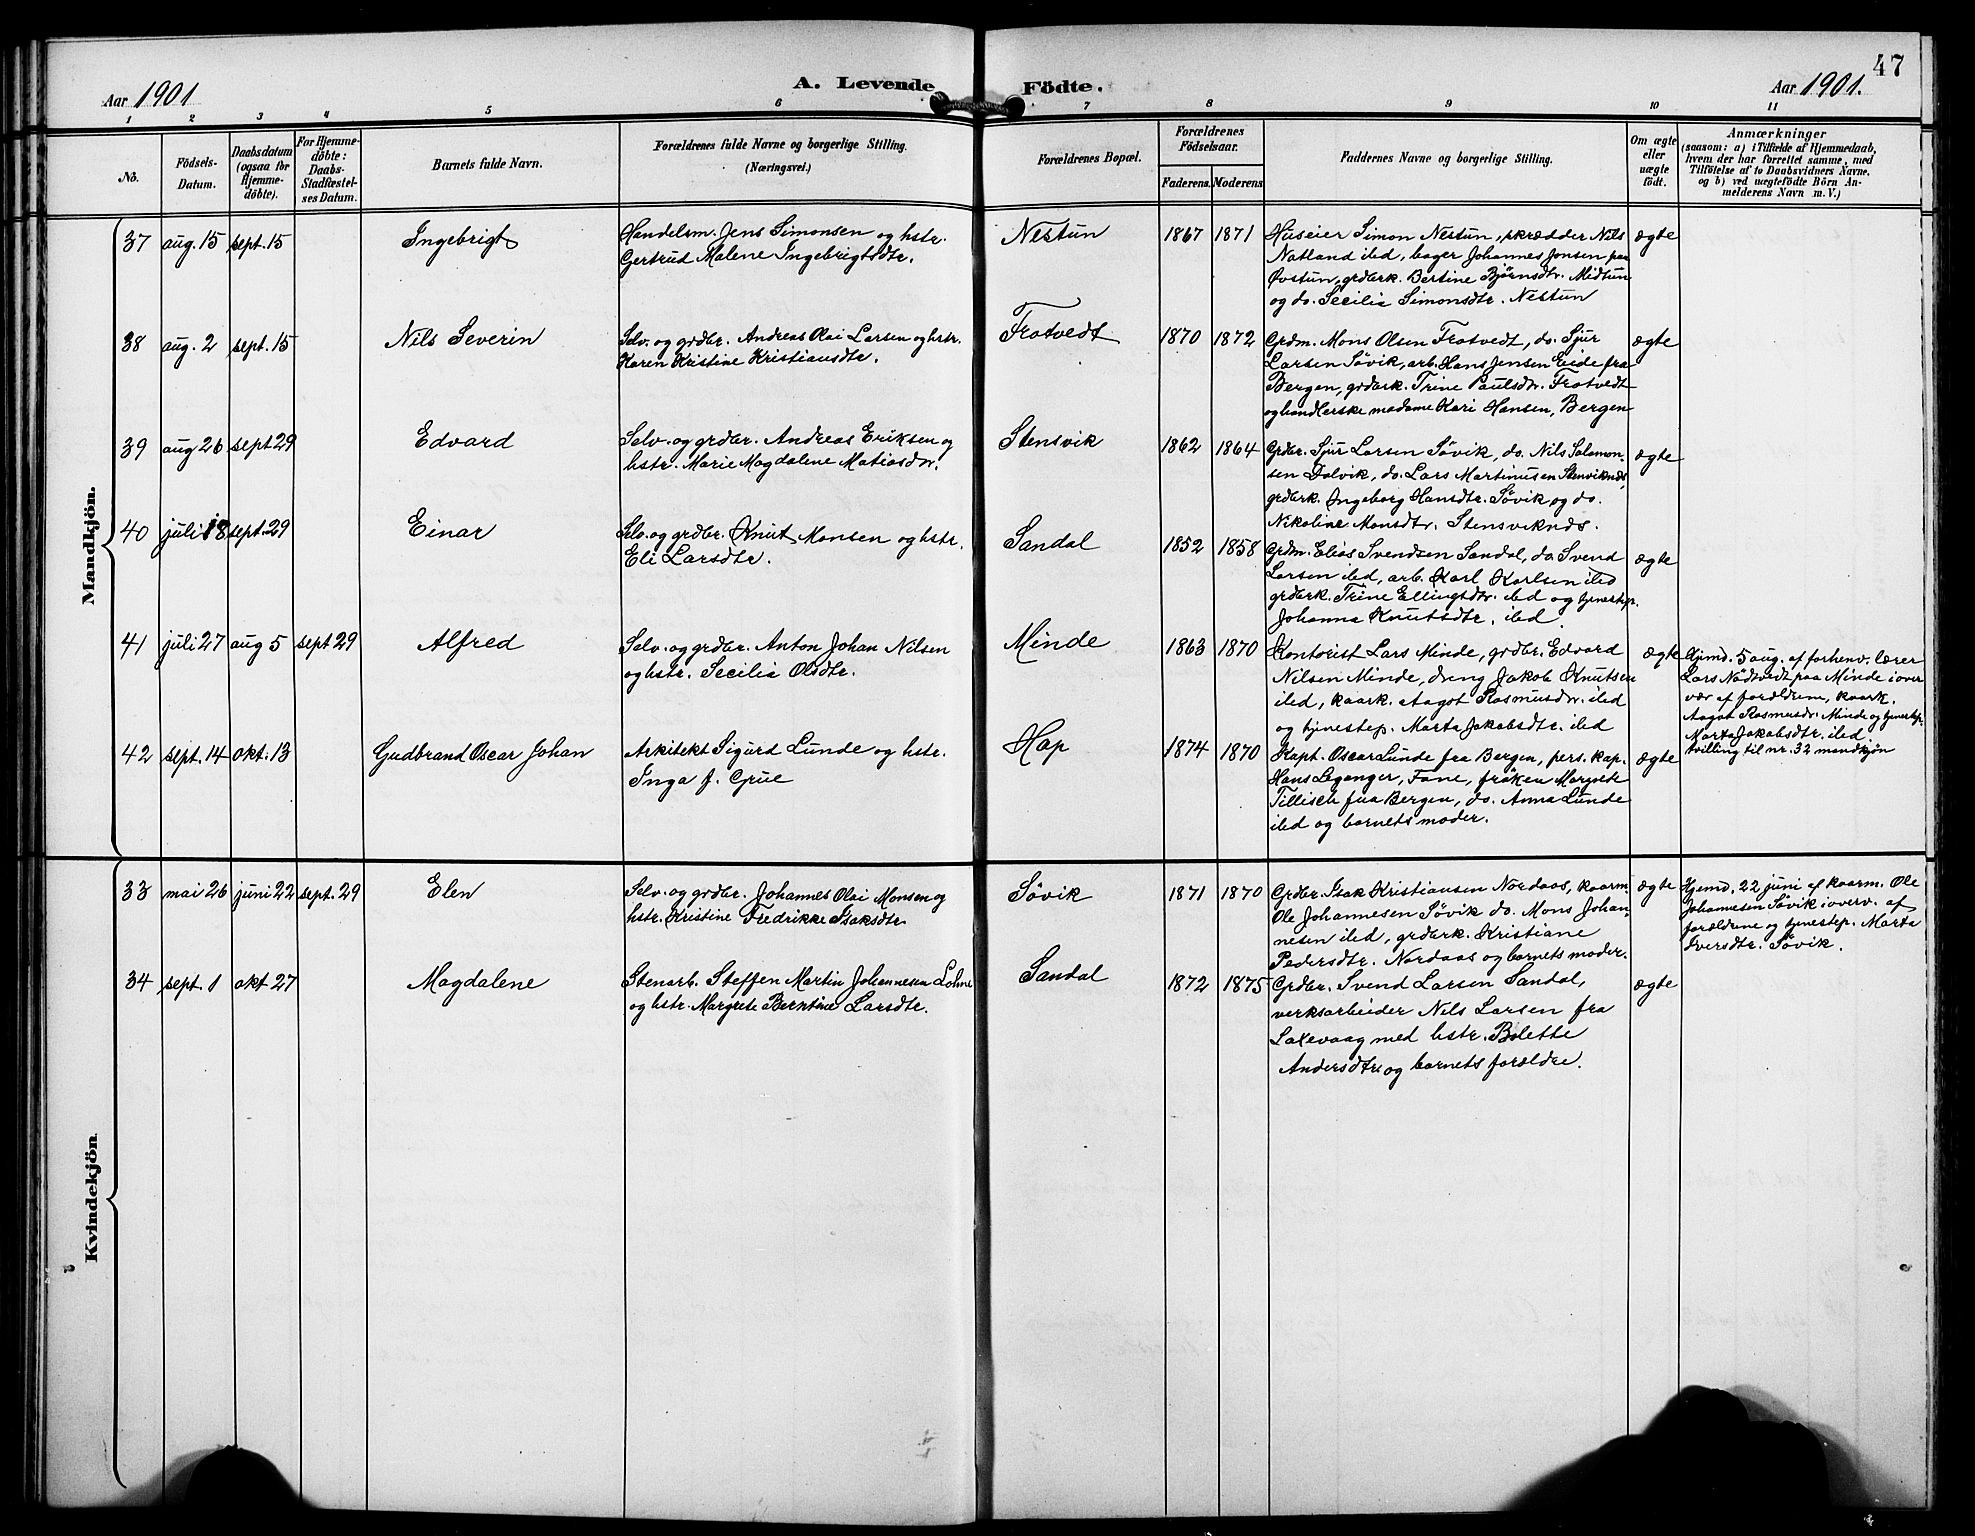 47
Aar 1901
A. Levende Födte.
Aar 1901.
1 2 3 4 5 6 7 8 9 10 11
No.
Födsels-
Datum.
Daabsdatum
(ogsaa for
Hjemme-
döbte).
For Hjemme-
döbte:
Daabs-
Stadfæstel-
ses Datum.
Barnets fulde Navn.
Forældrenes fulde Navne og borgerlige Stilling.
(Næringsvei.)
Forældrenes Bopæl.
Forældrenes
Födselsaar.
Faderens. Moderens
Faddernes Navne og borgerlige Stilling.
Om ægte
eller
uægte
födt.
Anmærkninger
(saasom: a) i Tilfælde af Hjemmedaab,
hvem der har forrettet samme, med
Tilföielse af to Daabsvidners Navne.
og b) ved uægtefödte Börn An-
melderens Navn m. V.)
Mandkjön.
37 aug. 15 sept. 15 Ingebrigt
Handelsm. Jens Simonsen og hstr.
Gertrud Malene Ingebrigtsdtr.
Nestun 1867 1871
Huseier Simon Nestun, skrædder Nils
Natland ibd, bager Johannes Jonsen paa
Øvstun, grdark. Bertine Bjørnsdtr. Midtun
og do. Secilia Simonsdtr. Nestun
ægte
38 aug. 2 sept. 15 Nils Severin
Selv. og grdbr. Andreas Olai Larsen og hstr.
Karen Kristine Kristiansdtr.
Frotvedt 1870 1872
Grdm. Mons Olsen Frotvedt, do. Sjur
Larsen Søvik, arb. Hans Jensen Eide fra
Bergen, grdark. Trine Paulsdtr. Frotvedt
og handlerske madame Kari Hansen, Bergen
ægte
39 aug 26 sept 29 Edvard
Selv. og grdbr. Andreas Eriksen og
hstr. Marie Magdalene Matiasdtr.
Stensvik 1862 1864
Grdbr. Sjur Larsen Søvik, do. Nils Salomon-
sen Dolvik, do. Lars Martinusen Stenviknds,
grdark. Ingeborg Hansdtr. Søvik og do.
Nikoline Monsdtr. Stensviknds.
ægte
40 juli 18 sept. 29 Einar
Selv. og grdbr. Knut Monsen og hstr.
Eli Larsdtr.
Sandal 1852 1858
Grdm. Elias Svendsen Sandal, do Svend
Larsen ibd, arb. Karl Karlsen ibd
grdark. Trine Ellingsdtr. ibd og tjenestep.
Johanna Knutsdtr. ibd.
ægte
41 juli 27 aug 5 sept 29 Alfred
Selv. og grdbr. Anton Johan Nilsen
og hstr. Secilia Olsdtr.
Minde 1863 1870
Kontorist Lars Minde, grdbr. Edvard
Nilsen Minde, dreng Jakob Knutsen
ibd, kaark. Aagot Rasmusdtr. ibd
og tjenestep. Marta Jakobsdtr. ibd
ægte
Hjmd. 5 aug. af forhenv. lærer
Lars Nödtvedt paa Minde i over
vær af forældrene, kaark.
Aagot Rasmusdr. Minde og tjenestep.
Marta Jakobsdtr. ibd.
tvilling til nr. 32 mandkjön
42 sept. 14 okt. 13 Gudbrand Oscar Johan
Arkitekt Sigurd Lunde og hstr.
Inga f. Grue
Hop 1874 1870
Kapt. Oscar Lunde fra Bergen, pers. kap.
Hans Leganger, Fane, frøken Margrete
Tillisch fra Bergen, do. Anna Lunde
ibd og barnets moder.
ægte
Kvindekjön
33 mai 26 juni 22 sept. 29 Elen
Selv. og grdbr. Johannes Olai Monsen og
hstr. Kristine Fredrikke Isaksdtr
Søvik 1871 1870
Grdbr. Isak Kristiansen Nordaas, kaarm.
Ole Johannesen Søvik do. Mons Johan-
nesen ibd, grdark. Kristiane
Pedersdtr. Nordaas og barnets moder.
ægte
Hjemd. 22 juni af kaarm. Ole
Johannesen Søvik i overv. af
forældrene og tjenestep. Marta
Iversdtr. Søvik.
34 sept. 1 okt 27 Magdalene
Stenarb. Steffen Martin Johannesen Lohne
og hstr. Margrete Berntine Larsdtr.
Sandal 1872 1875
Grdbr. Svend Larsen Sandal,
verksarbeider Nils Larsen fra
Laxevaag med hstr. Bolette
Andersdtr og barnets forældre.
ægte